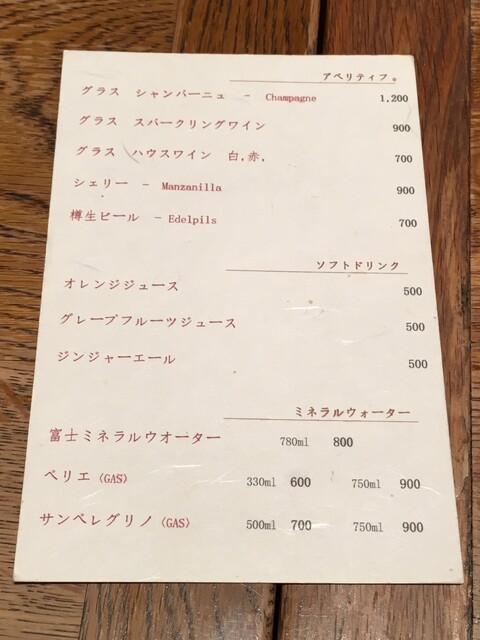 アペリティフ。
グラス シャンパーニュ － Champagne 1,200
グラス スパークリングワイン 900
グラス ハウスワイン 白,赤, 700
シェリー － Manzanilla 900
樽生ビール －Edelpils 700
ソフトドリンク
オレンジジュース 500
グレープフルーツジュース 500
ジンジャーエール 500
ミネラルウォーター
富士ミネラルウオーター 780ml 800
ペリエ〈GAS〉 330ml 600 750ml 900
サンペレグリノ〈GAS〉 500ml 700 750ml 900